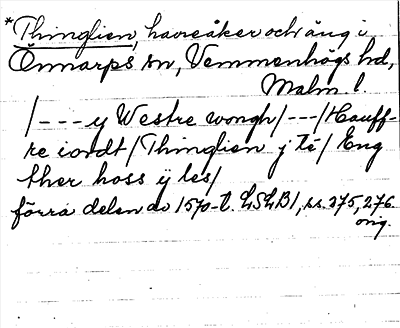 *Thinglien, havreåker och äng i
Önnarps sn, Vemmenhögs hd,
Malm l.
/---y Westre wongh/---/Hauff-
re iordt/Thinglien j té/Eng
ther hoss ij les/
förra delen av 1570-t. LSLB1, ss. 275, 276.
orig.